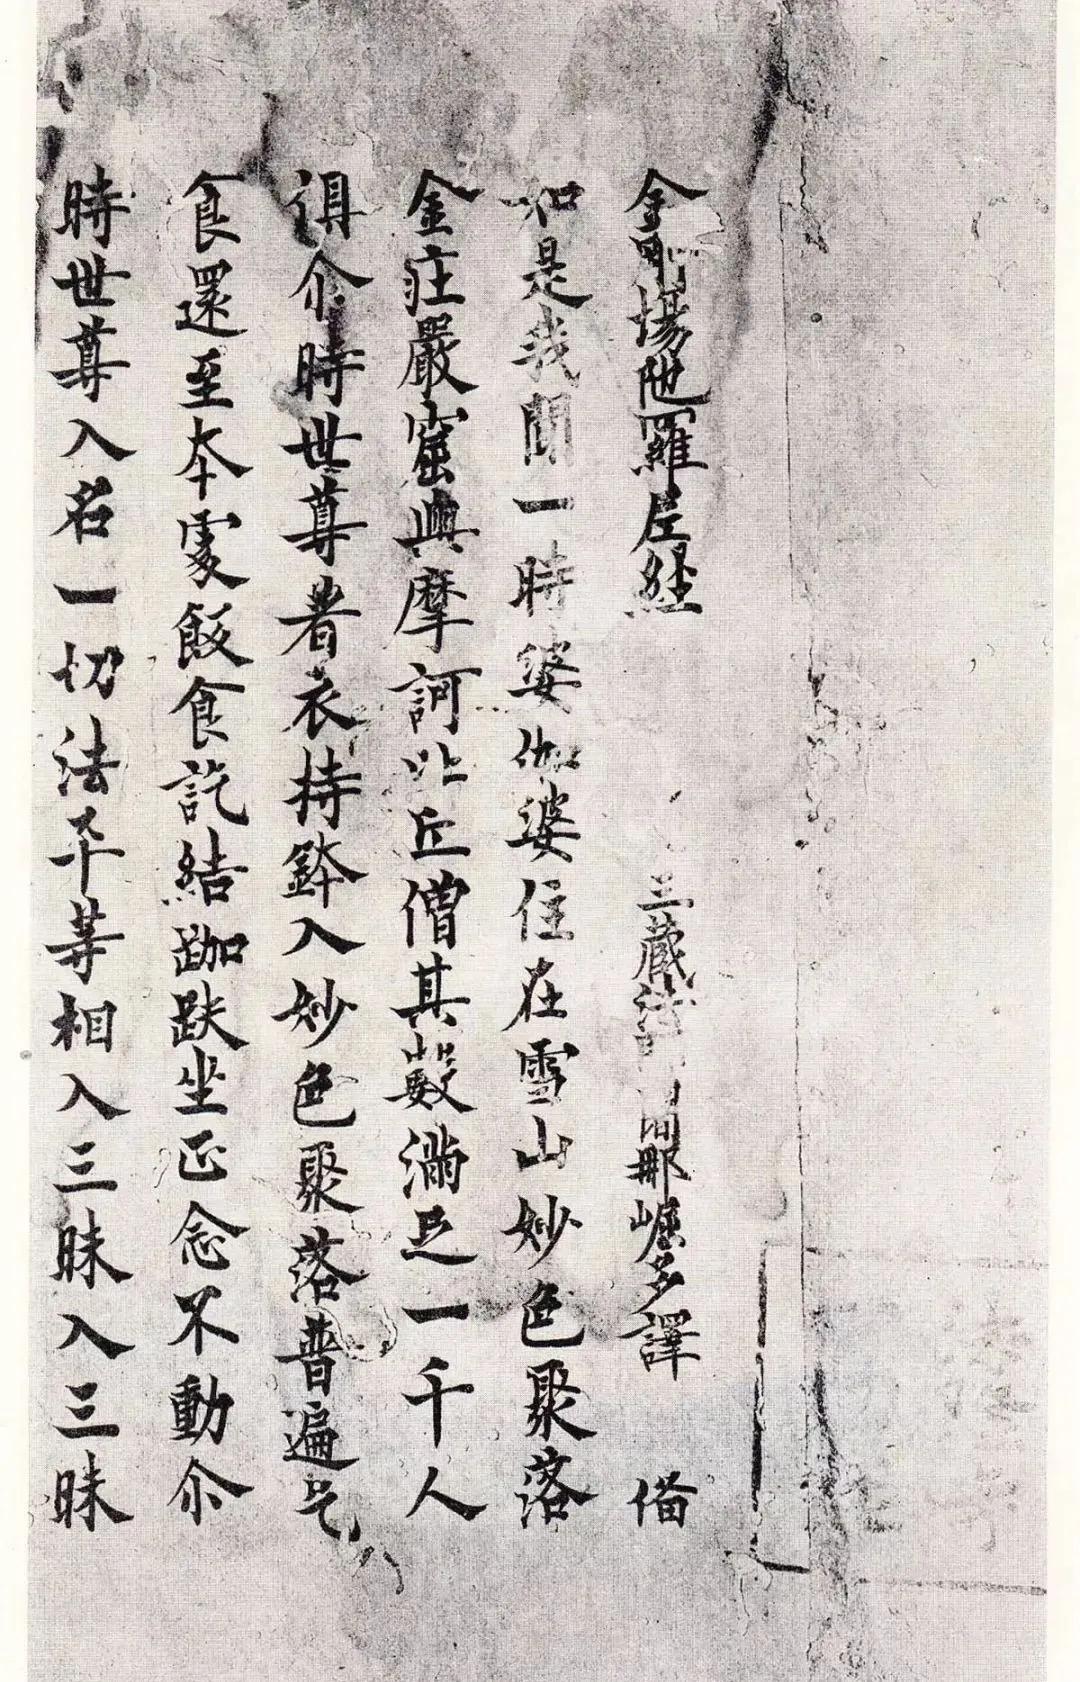 金剛場陁羅尼経 三藏法闍那崛多譯 俻
如是我聞一時婆伽婆住在雪山妙色聚落
金荘嚴窟與摩訶比丘僧其數滿足一千人
俱尒時世尊著衣持鉢入妙色聚落普遍乞
食還至夲處飯食訖結跏趺坐正念不動尒
時世尊入名一切法平等相入三昧入三昧